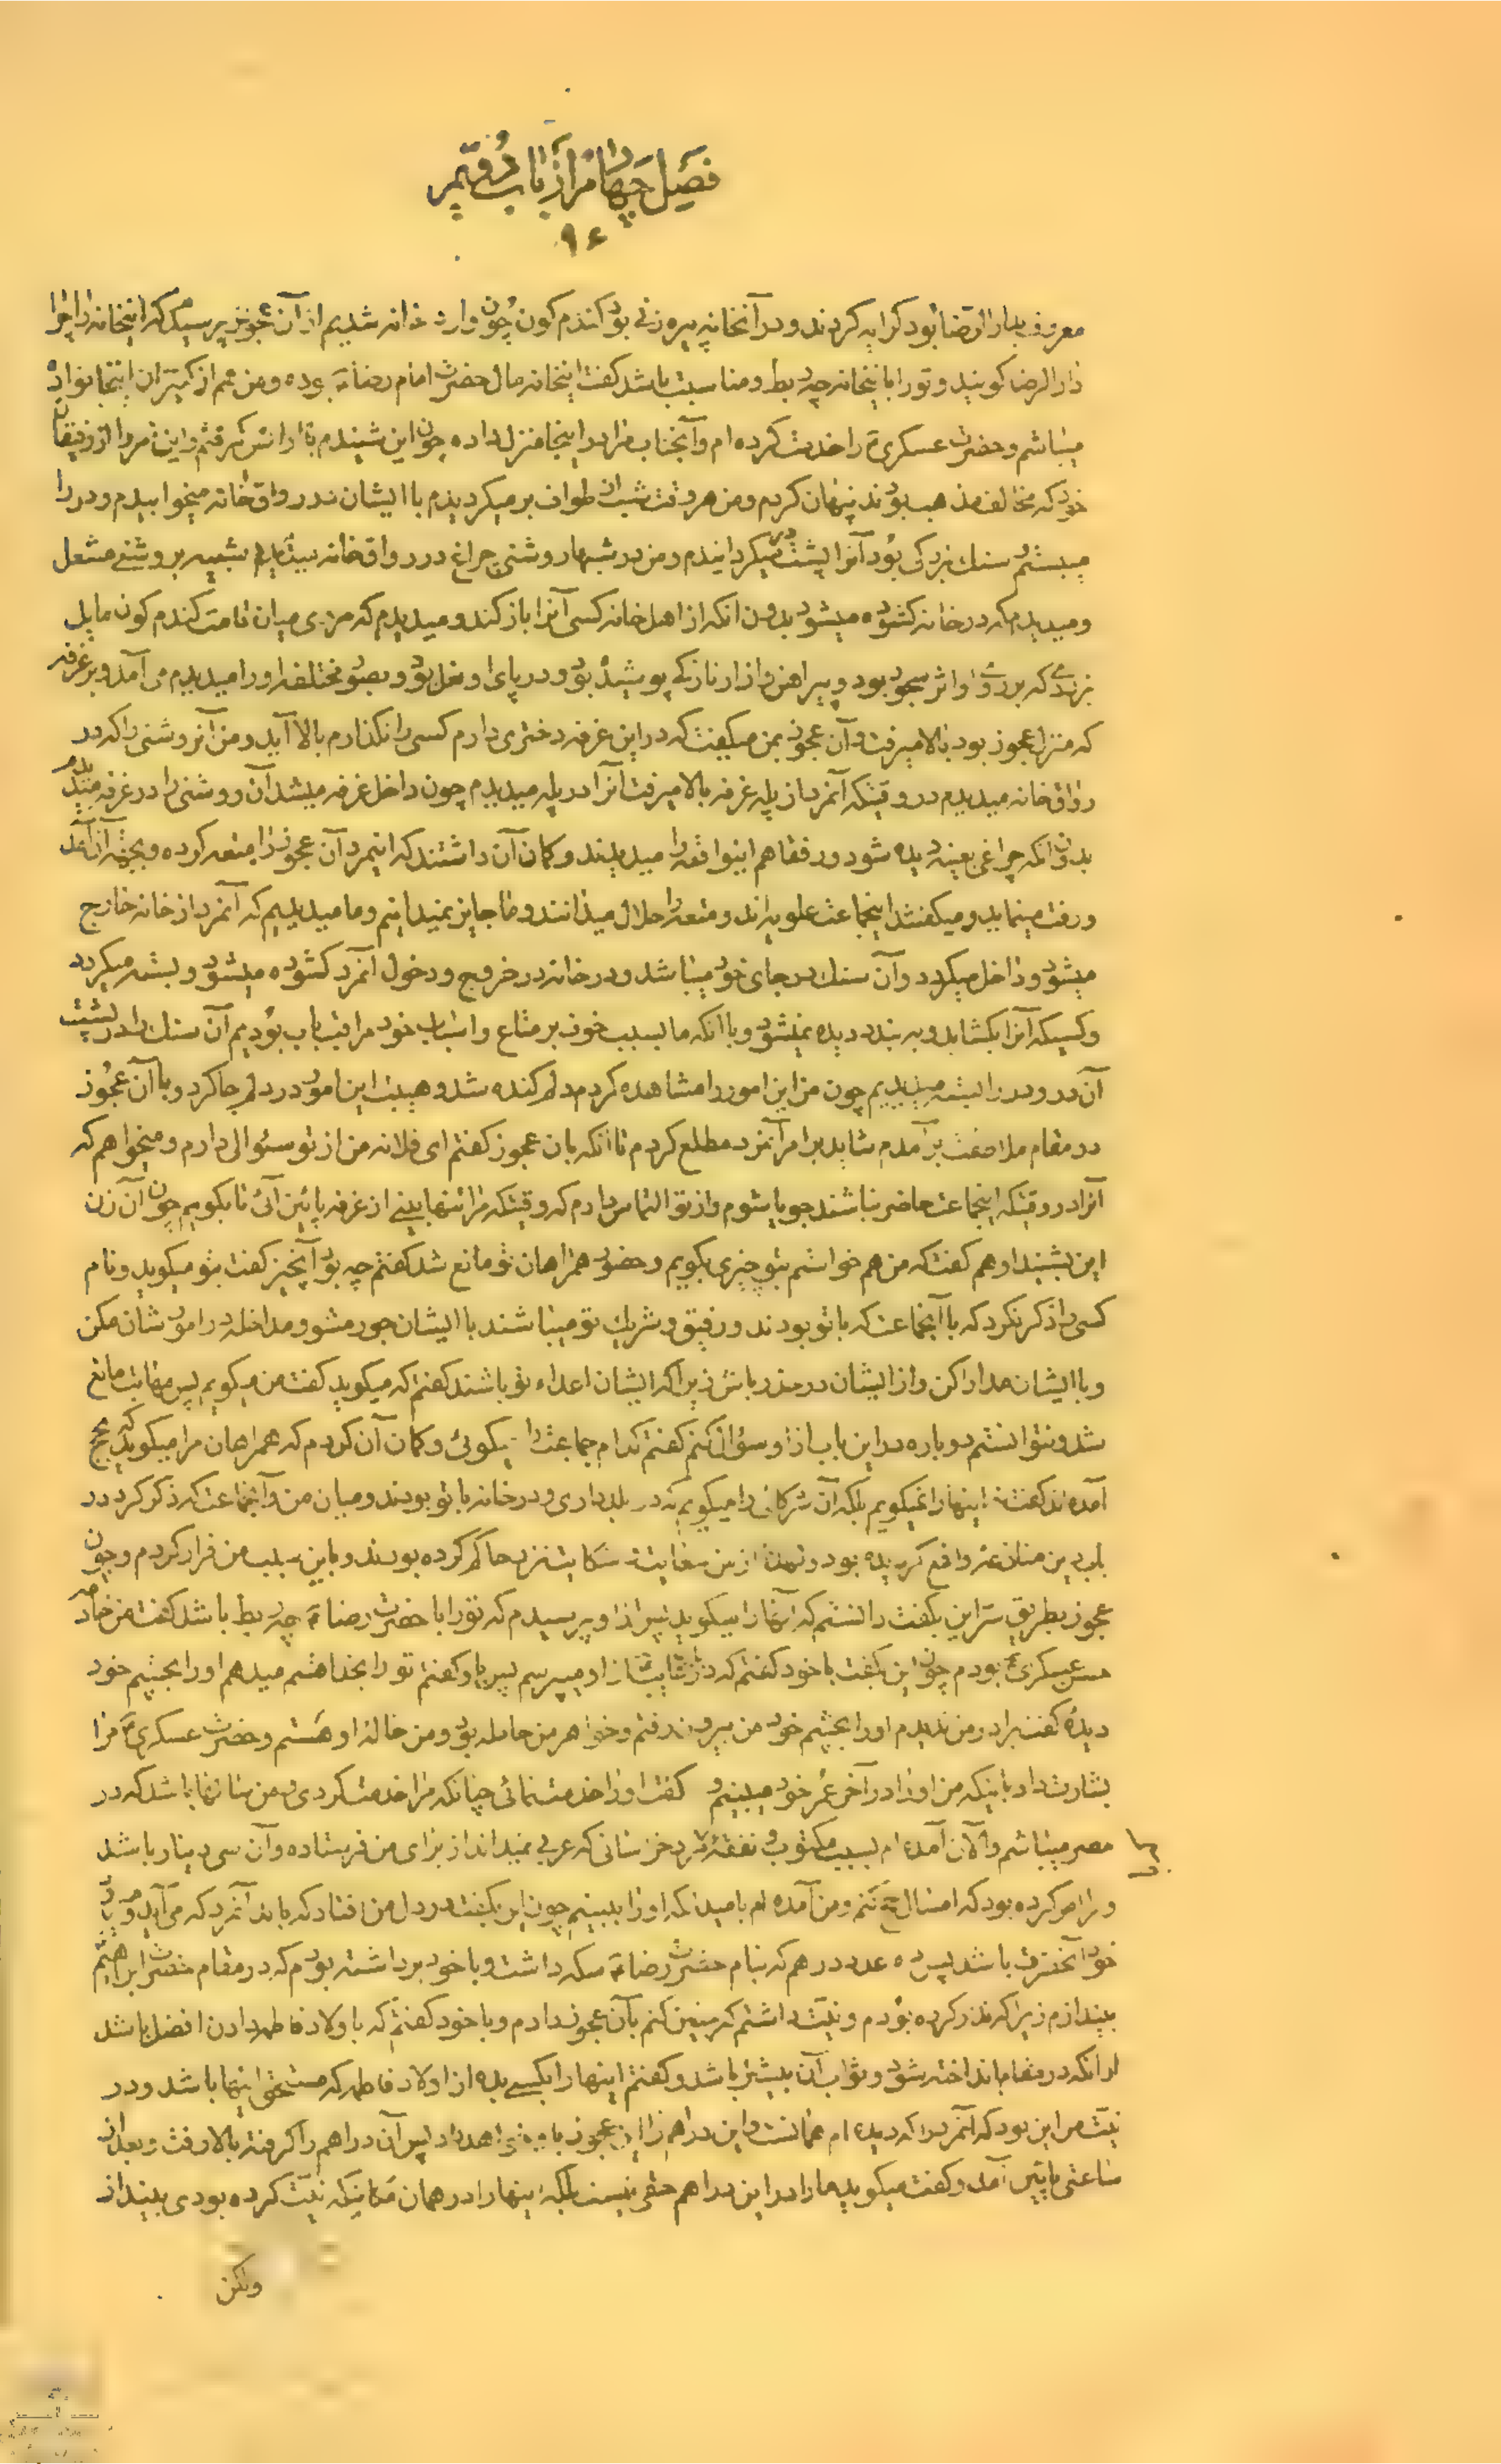 فصل چهارم از باب دویم
۹۴
معروف بدار الرضا بود کرایه کردند و در آنخانه پیره زنی بود کندم کون چون وارد خانه شدیم از آن عجوز پرسیدم که اینخانه را چرا
دار الرضا کویند و تو را با اینخانه چه ربط و مناسبت باشد کفت اینخانه مال حضرت امام رضا ع بوده و من هم از کنیزان اینخانواده
میباشم و حضرت عسکری ع را خدمت کرده ام و آنجناب مرا در اینجا منزل داده چون این شنیدم با او انس کرفتم و این امر را از رفیقان
خود که مخالف مذهب بودند پنهان کردم و من هر وقت شب از طواف برمیکردیدم با ایشان در رواق خانه میخوابیدم و در را
میبستم و سنك بزرکی بود آنرا پشت در میکردانیدم و من در شبها روشنی چراغ در رواق خانه میدیدم شبیه بروشنی مشعل
و میدیدم که در خانه کشوده میشود بدون انکه از اهل خانه کسی آنرا باز کند و میدیدم که مردی میان قامت کندم کون مایل
بزردی که بر روی او اثر سجود بود و پیراهن و ازار نازکی پوشیده بود و در پای او نعل بود و بصور مختلفه او را میدیدم می آمد و بر غرفه
که منزل عجوز بود بالا میرفت و آن عجوز بمن میکفت که در این غرفه دختری دارم کسی را نکذارم بالا آید و من آنروشنی را که در
رواق خانه میدیدم در وقتیکه آنمرد از پله غرفه بالا میرفت آنرا در پله میدیدم چون داخل غرفه میشد آن روشنی را در غرفه میدیدم
بدون انکه چراغی بعینه دیده شود و رفقا هم اینواقعه را میدیدند و کمان آن داشتند که اینمرد آن عجوز را متعه کرده و بجهة آن آمد
و رفت مینماید و میکفتند اینجماعت علویه اند و متعه را حلال میدانند و ما جایز نمیدانیم و ما میدیدیم که آنمرد از خانه خارج
میشود و داخل میکردد و آن سنك در جای خود میباشد و در خانه در خروج و دخول آنمرد کشوده میشود و بسته میکردد
و کسیکه آنرا بکشاید و به بندد دیده نمیشود و با انکه ما بسبب خوف بر متاع و اسباب خود مراقب باب بودیم آن سنك را در پشت
آن در و در را بسته میدیدیم چون من این امور را مشاهده کردم دلم کنده شد و هیبت این امور در دلم جا کرد و با آن عجوز
در مقام ملاطفت برآمدم شاید بر امر آنمرد مطلع کردم تا انکه بان عجوز کفتم ای فلانه من از تو سئوالی دارم و میخواهم که
آنرا در وقتیکه اینجماعت حاضر نباشند جویا شوم و از تو التماس دارم که وقتیکه مرا تنها بینی از غرفه پائین آئی تا بکویم چون آن زن
این بشنید او هم کفت که من هم خواستم بتو چیزی بکویم و حضور همراهان تو مانع شد کفتم چه بود آنچیز کفت بتو میکوید و نام
کسی را ذکر نکرد که با آنجماعت که با تو بودند و رفیق و شریك تو میباشند با ایشان جور مشو و مداخله در امور شان مکن
و با ایشان مدارا کن و از ایشان در حذر باش زیرا که ایشان اعداء تو باشند کفتم که میکوید کفت من میکویم پس مهابت مانع
شد و نتوانستم دوباره در این باب از او سؤال کنم کفتم کدام جماعت را میکوئی و کمان آن کردم که همراهان مرا میکوید که بحج
آمده اند کفت اینها را نمیکویم بلکه آن شرکائی را میکویم که در بلد داری و در خانه با تو بودند و میان من و آنجماعت که ذکر کرد در
باب دین منازعه واقع کردیده بود و از من سعایت و شکایت نزد حاکم کرده بودند و باین سبب من فرار کردم و چون
عجوز بطریق سر این بکفت دانستم که آنها را میکوید پس از او پرسیدم که تو را با حضرت رضا ع چه ربط باشد کفت من خادمه
حسن عسکری ع بودم چون این بکفت با خود کفتم که در باب غایب از او میپرسم پس باو کفتم تو را بخدا قسم میدهم او را بچشم خود
دیدۀ کفت برادر من ندیدم او را بچشم خود من بیرون رفتم و خواهر من حامله بود و من خالۀ او هستم و حضرت عسکری ع مرا
بشارت داد باینکه من او را در آخر عمر خود میبینم و کفت او را خدمت نمائی چنانکه مرا خدمت کردی و من سالها باشد که در
مصر میباشم و الآن آمده ام بسبب مکتوب و نفقۀ که مرد خراسانی که عربی نمیداند از برای من فرستاده و آن سی دینار باشد
و مرا امر کرده بود که امسال حج کنم و من آمده ام بامید انکه او را ببینم چون این بکفت در دل من افتاد که باید آنمرد که می آید و میرود
خود آنحضرت باشد پس ده عدد درهم که بنام حضرت رضا ع سکه داشت و با خود برداشته بودم که در مقام حضرت ابراهیم
بیندازم زیرا که نذر کرده بودم و نیت داشتم که چنین کنم بآن عجوز دادم و با خود کفتم که باولاد فاطمه دادن افضل باشد
از انکه در مقام انداخته شود و ثواب آن بیشتر باشد و کفتم اینها را بکسی بده از اولاد فاطمه که مستحق اینها باشد و در
نیت من این بود که آنمرد را که دیده ام همانست و این دراهم را این عجوز باو خواهد داد پس آن دراهم را کرفته بالا رفت و بعد از
ساعتی پائین آمد و کفت میکوید ما را در این دراهم حقی نیست بلکه اینها را در همان مکانیکه نیت کرده بودی بینداز
ولکن